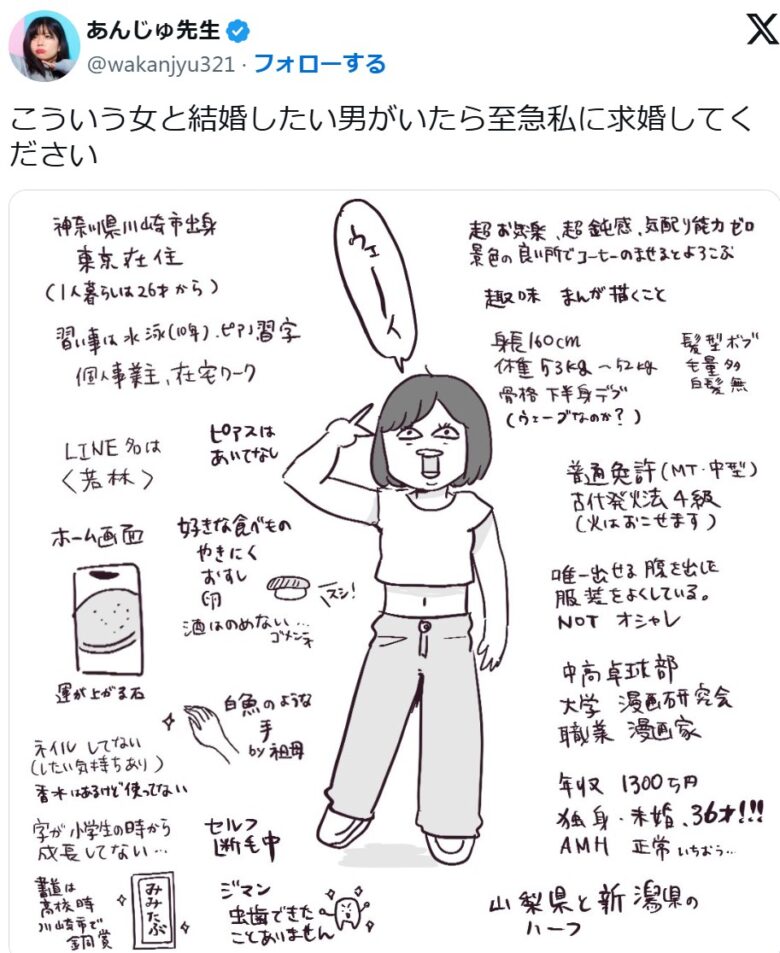 あんじゅ先生
@wakanjyu321 · フォローする
こういう女と結婚したい男がいたら至急私に求婚してく
ださい
ウェーイ
神奈川県川崎市出身
東京在住
(1人暮らしは26才から)
習い事は水泳(10年).ピアノ習字
個人事業主、在宅ワーク
LINE名は
〈若林〉
ピアスは
あいてなし
ホーム画面
運が上がる石
好きな食べもの
やきにく
おすし
卵
スシ!
酒はのめない…
ゴメンネ
白魚のような
手
by祖母
ネイルしてない
(したい気持ちあり)
香水はあるけど使ってない
字が小学生の時から
成長してない…
セルフ
断毛中
書道は
高校時
川崎市で
銅賞
みみたぶ
ジマン
虫歯できた
ことありません
超お気楽、超鈍感、気配り能力ゼロ
景色の良い所でコーヒーのませるとよろこぶ
趣味 まんが描くこと
身長160cm
体重53kg〜52kg
骨格 下半身デブ
(ウェーブなのか?)
髪型ボブ
毛量多
白髪無
普通免許(MT・中型)
古代発火法4級
(火はおこせます)
唯一出せる腹を出した
服装をよくしている。
NOT オシャレ
中高卓球部
大学 漫画研究会
職業 漫画家
年収 1300万円
独身・未婚、36才!!!
AMH 正常 いちおう…
山梨県と新潟県の
ハーフ